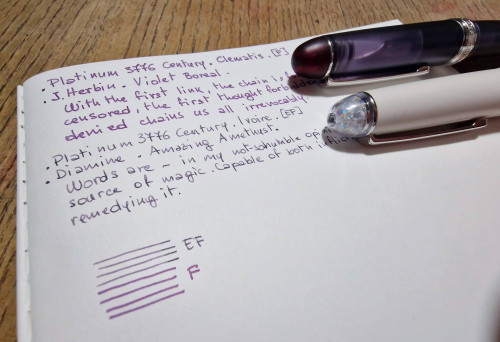 · Platinum 3776 Century. Clematis. [F]
· J. Herbin. Violet Boreal.
With the first link, the chain i
censored, the first thought forb
denied chains us all irrevocably.
· Platinum 3776 Century. Ivoire. [EF]
· Diamine. Amazing Amethyst.
Words are - in my not-so-humble op
source of magic. Capable of both i
remedying it.
EF
F